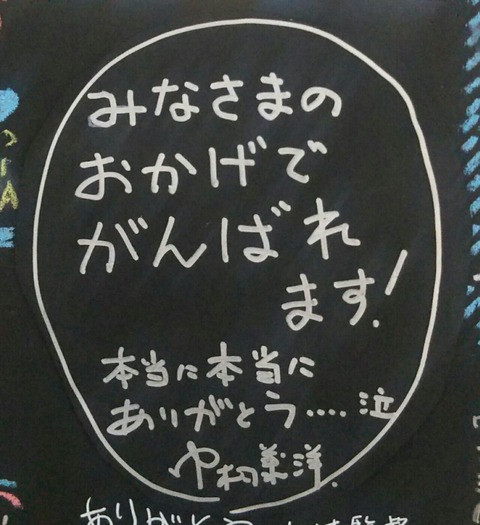 みなさまの
おかげで
がんばれ
ます!
本当に本当に
ありがとう.... 泣
ありがとう